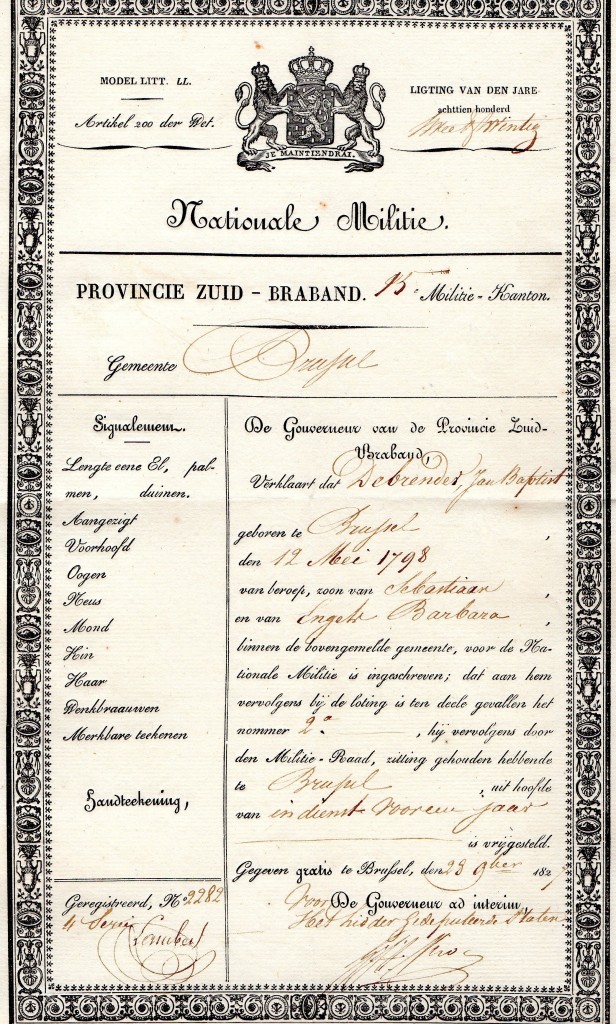 MODEL LITT. LL.
Artikel 200 der Wet.
JE MAINTIENDRAI.
LIGTING VAN DEN JARE
achttien honderd
twintig
Nationale Militie.
PROVINCIE ZUID - BRABAND. 15e Militie - Kanton.
Gemeente Brussel
Signalement.
Lengte eene El, pal-
men, duimen.
Aangezigt
Voorhoofd
Oogen
Neus
Mond
Kin
Haar
Wenkbraauwen
Merkbare teekenen
Handteekening,
Geregistreerd, No 2282
4 Serie
De Gouverneur van de Provincie Zuid-
Braband,
Verklaart dat Debrender, Jan Baptist
geboren te Brussel,
den 12 Mei 1798
van beroep, zoon van Sebastiaan
en van Engels Barbara,
binnen de bovengemelde gemeente, voor de Na-
tionale Militie is ingeschreven; dat aan hem
vervolgens bij de loting is ten deele gevallen het
nommer 2a, hij vervolgens door
den Militie-Raad, zitting gehouden hebbende
te Brussel, uit hoofde
van in dienst voor een jaar
is vrijgesteld.
Gegeven gratis te Brussel, den 28 9ber 182
Voor De Gouverneur ad interim,
Het lid der Gedeputeerde Staten